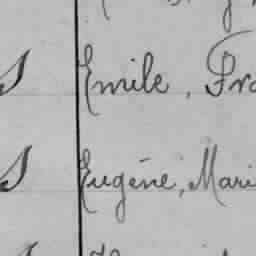 Emile, Fra
Eugène, Mari